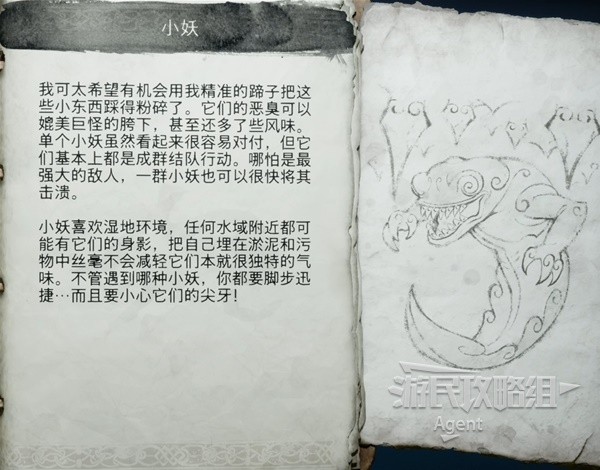 小妖
我可太希望有机会用我精准的蹄子把这
些小东西踩得粉碎了。它们的恶臭可以
媲美巨怪的胯下，甚至还多了些风味。
单个小妖虽然看起来很容易对付，但它
们基本上都是成群结队行动。哪怕是最
强大的敌人，一群小妖也可以很快将其
击溃。
小妖喜欢湿地环境，任何水域附近都可
能有它们的身影，把自己埋在淤泥和污
物中丝毫不会减轻它们本就很独特的气
味。不管遇到哪种小妖，你都要脚步迅
捷…而且要小心它们的尖牙！
游民攻略组
Agent